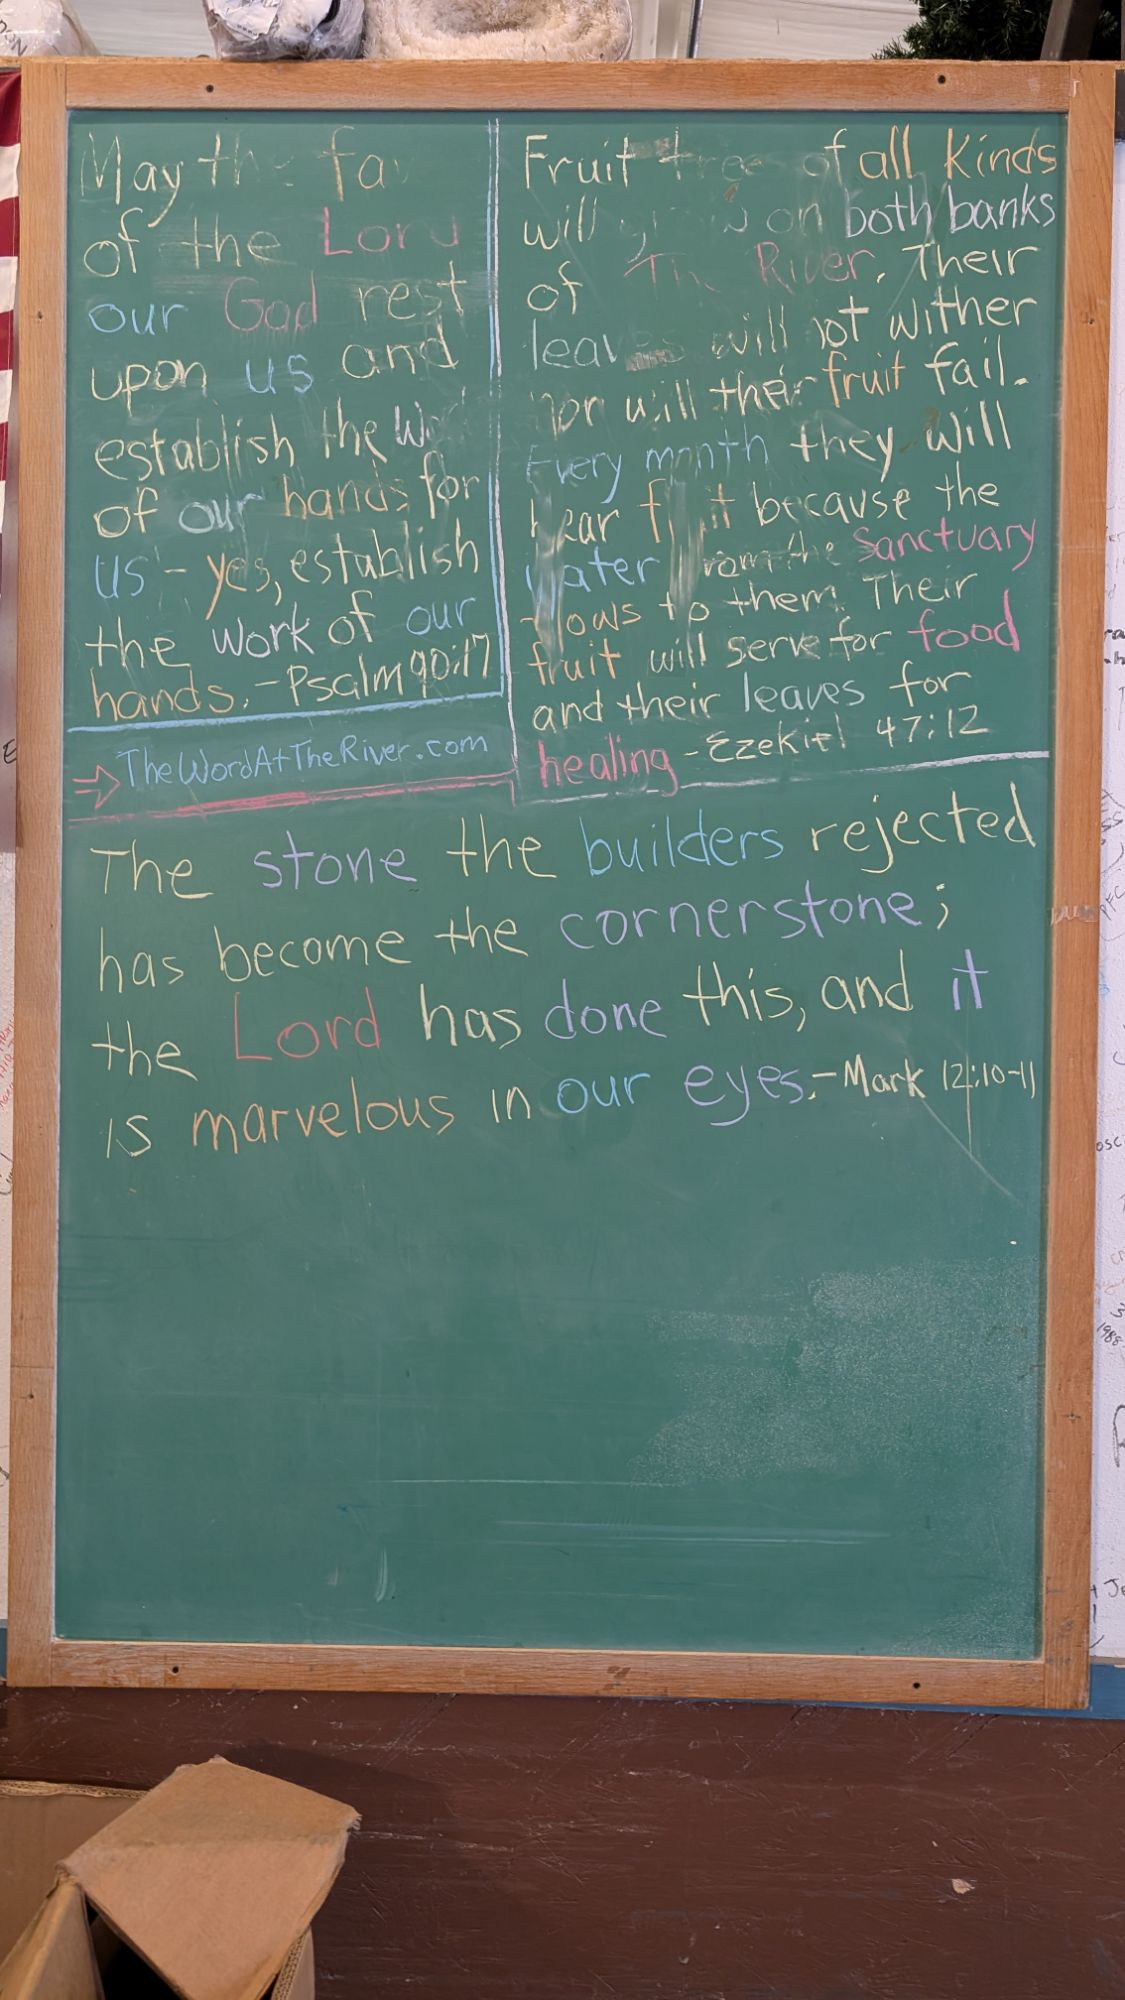 May the fa
of the Lord
our God rest
upon us and
establish the Wo
of our hands for
us - yes, establish
the work of our
hands. - Psalm 90:17
TheWordAtTheRiver.com
Fruit trees of all Kinds
will grow on both banks
of The River. Their
leaves will not wither
nor will their fruit fail.
Every month they will
bear fruit because the
water from the Sanctuary
flows to them. Their
fruit will serve for food
and their leaves for
healing - Ezekiel 47:12
The stone the builders rejected
has become the cornerstone;
the Lord has done this, and it
is marvelous in our eyes. - Mark 12:10-11